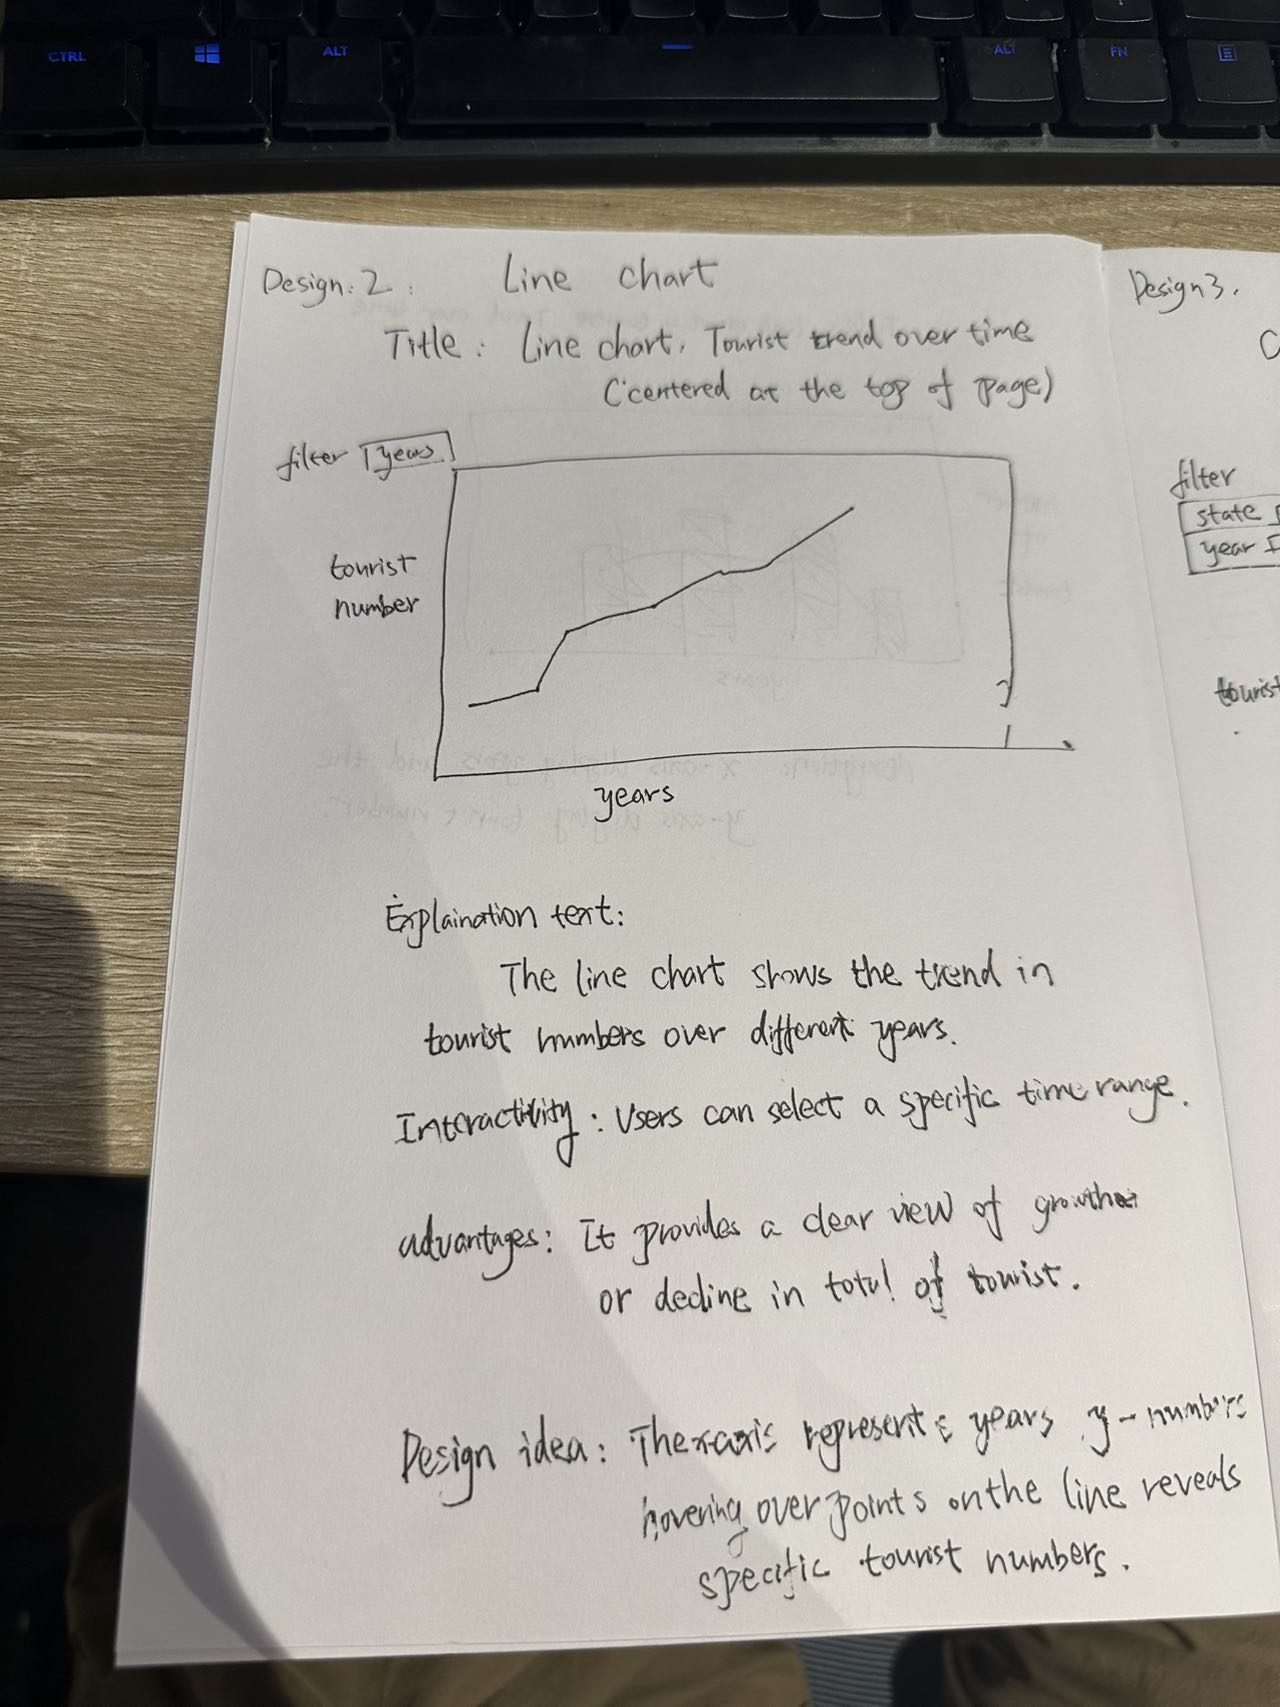 CTRL
ALT
ALT
FN
Design: 2: Line chart
Title: Line chart, Tourist trend over time
(centered at the top of page)
filter years
tourist
number
years
Explaination text:
The line chart shows the trend in
tourist numbers over different years.
Interactivity: Users can select a specific time range.
advantages: It provides a clear view of growth
or decline in total of tourist.
Design idea: The x-axis represents years y-numbers
hovering over points on the line reveals
specific tourist numbers.
Design 3.
filter
state
year
tourist